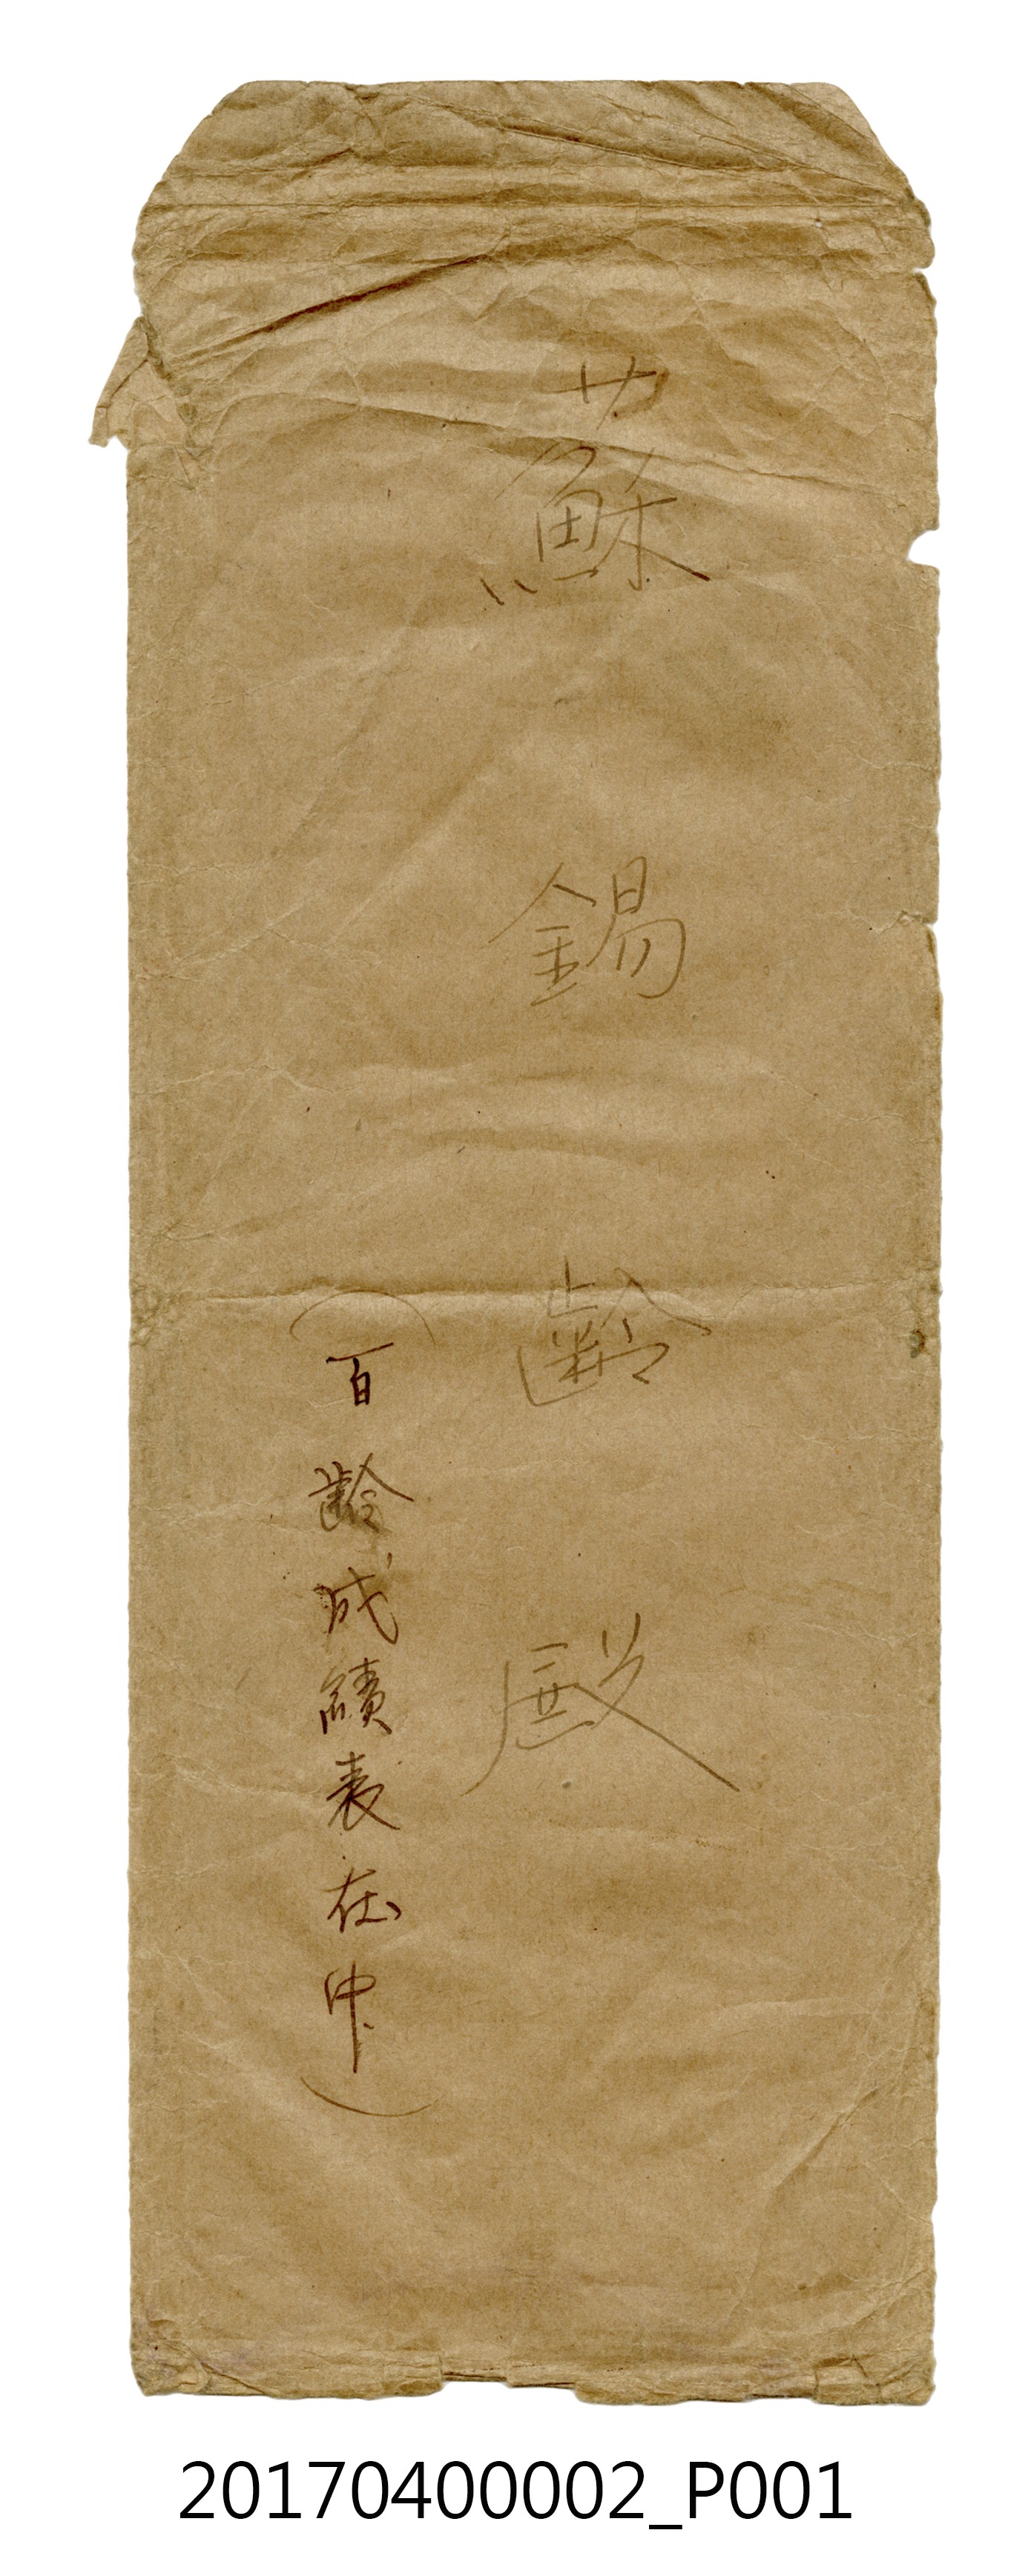 蘇錫齡殿
（百齡成績表在中）
20170400002_P001